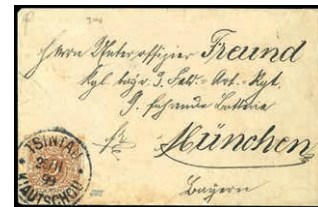 Herrn Unteroffizier Freund
Kgl. bayr. 3. Feld.-Art.-Rgt.
9. fahrende Batterie
München
Bayern
TSINTAU
99
KIAUTSCHOU